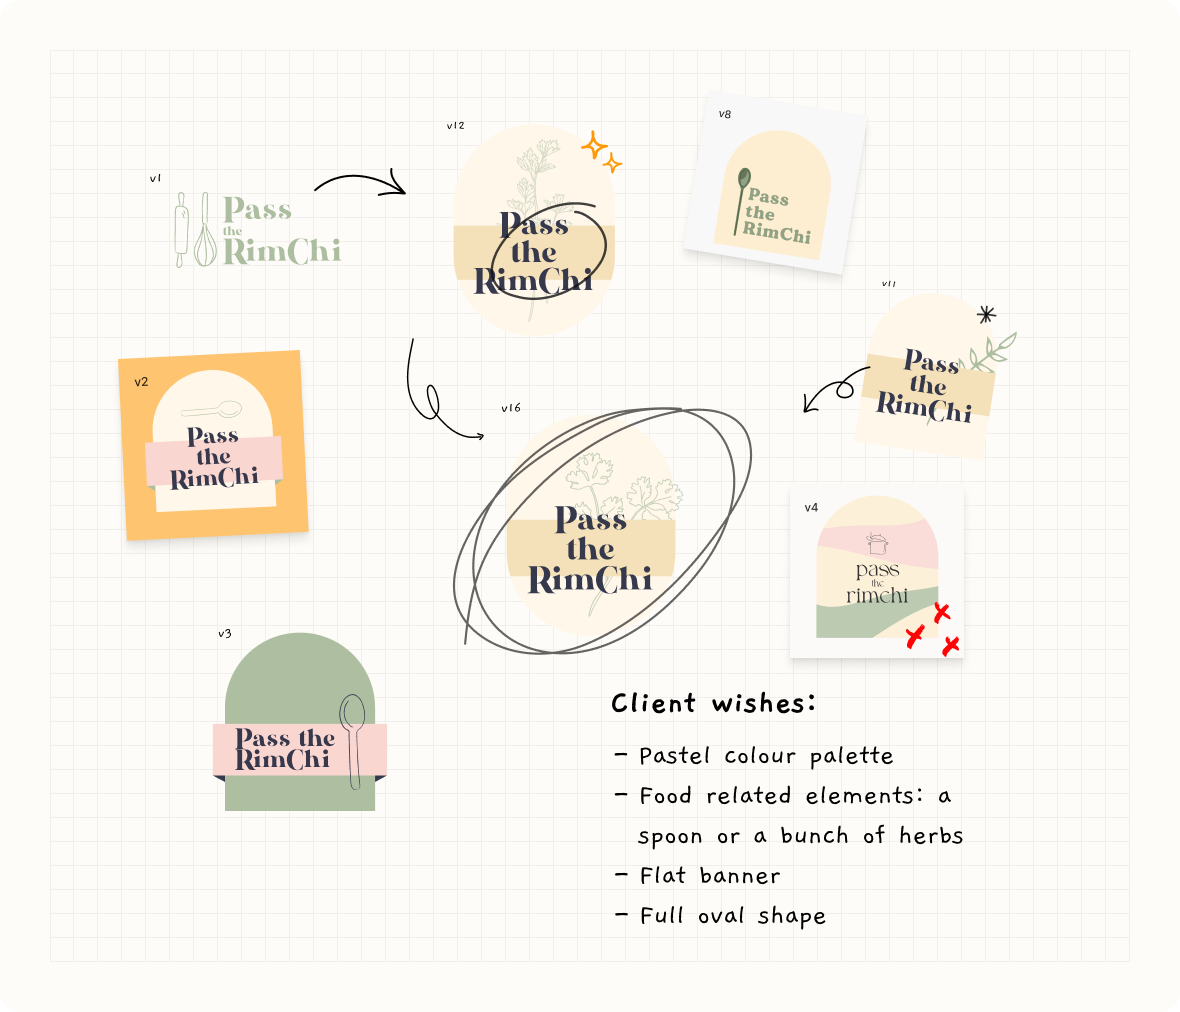 v1
Pass
the
RimChi
v12
Pass
the
RimChi
v8
Pass
the
RimChi
v11
Pass
the
RimChi
v2
Pass
the
RimChi
v16
Pass
the
RimChi
v4
pass
the
rimchi
v3
Pass the
RimChi
Client wishes:
- Pastel colour palette
- Food related elements: a
spoon or a bunch of herbs
- Flat banner
- Full oval shape